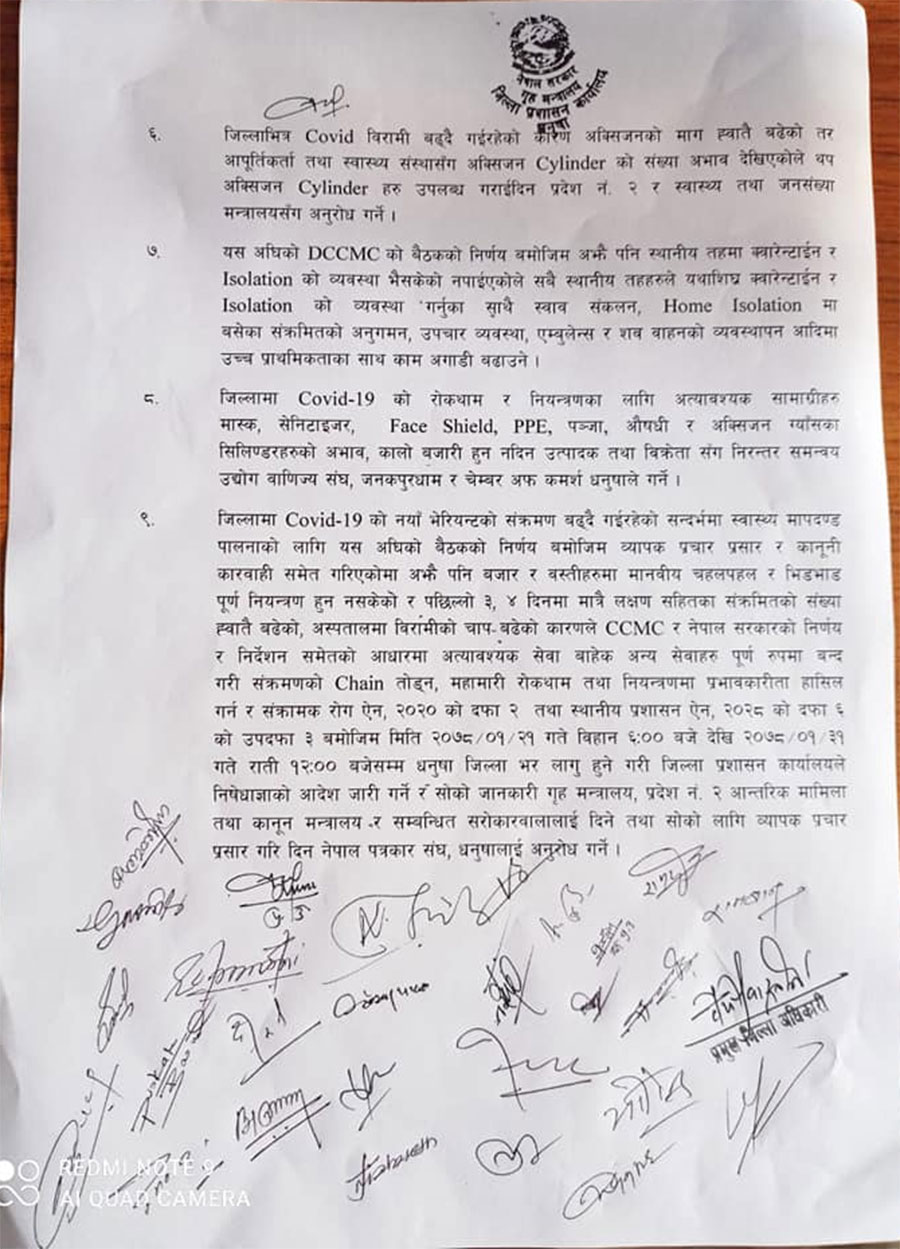 नेपाल सरकार
गृह मन्त्रालय
जिल्ला प्रशासन कार्यालय
धनुषा
६. जिल्लाभित्र Covid विरामी बढ्दै गईरहेको कारण अक्सिजनको माग ह्वातै बढेको तर
आपूर्तिकर्ता तथा स्वास्थ्य संस्थासँग अक्सिजन Cylinder को संख्या अभाव देखिएकोले थप
अक्सिजन Cylinder हरु उपलब्ध गराईदिन प्रदेश नं. २ र स्वास्थ्य तथा जनसंख्या
मन्त्रालयसँग अनुरोध गर्ने ।
७. यस अघिको DCCMC को बैठकको निर्णय बमोजिम अझै पनि स्थानीय तहमा क्वारेन्टाईन र
Isolation को व्यवस्था भैसकेको नपाईएकोले सबै स्थानीय तहहरुले यथाशिघ्र क्वारेन्टाईन र
Isolation को व्यवस्था गर्नुका साथै स्वाव संकलन, Home Isolation मा
बसेका संक्रमितको अनुगमन, उपचार व्यवस्था, एम्बुलेन्स र शव वाहनको व्यवस्थापन आदिमा
उच्च प्राथमिकताका साथ काम अगाडी बढाउने ।
८. जिल्लामा Covid-19 को रोकथाम र नियन्त्रणका लागि अत्यावश्यक सामाग्रीहरु
मास्क, सेनिटाइजर, Face Shield, PPE, पञ्जा, औषधी र अक्सिजन ग्याँसका
सिलिण्डरहरुको अभाव, कालो बजारी हुन नदिन उत्पादक तथा विक्रेता संग निरन्तर समन्वय
उद्योग वाणिज्य संघ, जनकपुरधाम र चेम्बर अफ कमर्श धनुषाले गर्ने ।
९. जिल्लामा Covid-19 को नयाँ भेरियन्टको संक्रमण बढ्दै गईरहेको सन्दर्भमा स्वास्थ्य मापदण्ड
पालनाको लागि यस अघिको बैठकको निर्णय बमोजिम व्यापक प्रचार प्रसार र कानूनी
कारवाही समेत गरिएकोमा अझै पनि बजार र बस्तीहरुमा मानवीय चहलपहल र भिडभाड
पूर्ण नियन्त्रण हुन नसकेको र पछिल्लो ३, ४ दिनमा मात्रै लक्षण सहितका संक्रमितको संख्या
ह्वातै बढेको, अस्पतालमा विरामीको चाप बढेको कारणले CCMC र नेपाल सरकारको निर्णय
र निर्देशन समेतको आधारमा अत्यावश्यक सेवा बाहेक अन्य सेवाहरु पूर्ण रुपमा बन्द
गरी संक्रमणको Chain तोड्न, महामारी रोकथाम तथा नियन्त्रणमा प्रभावकारीता हासिल
गर्न र संक्रामक रोग ऐन, २०२० को दफा २ तथा स्थानीय प्रशासन ऐन, २०२८ को दफा ६
को उपदफा ३ बमोजिम मिति २०७८/०१/२१ गते विहान ६:०० बजे देखि २०७८/०१/३१
गते राती १२:०० बजेसम्म धनुषा जिल्ला भर लागु हुने गरी जिल्ला प्रशासन कार्यालयले
निषेधाज्ञाको आदेश जारी गर्ने र सोको जानकारी गृह मन्त्रालय, प्रदेश नं. २ आन्तरिक मामिला
तथा कानून मन्त्रालय र सम्बन्धित सरोकारवालालाई दिने तथा सोको लागि व्यापक प्रचार
प्रसार गरि दिन नेपाल पत्रकार संघ, धनुषालाई अनुरोध गर्ने ।
प्रमुख जिल्ला अधिकारी
REDMI NOTE 9
AI QUAD CAMERA